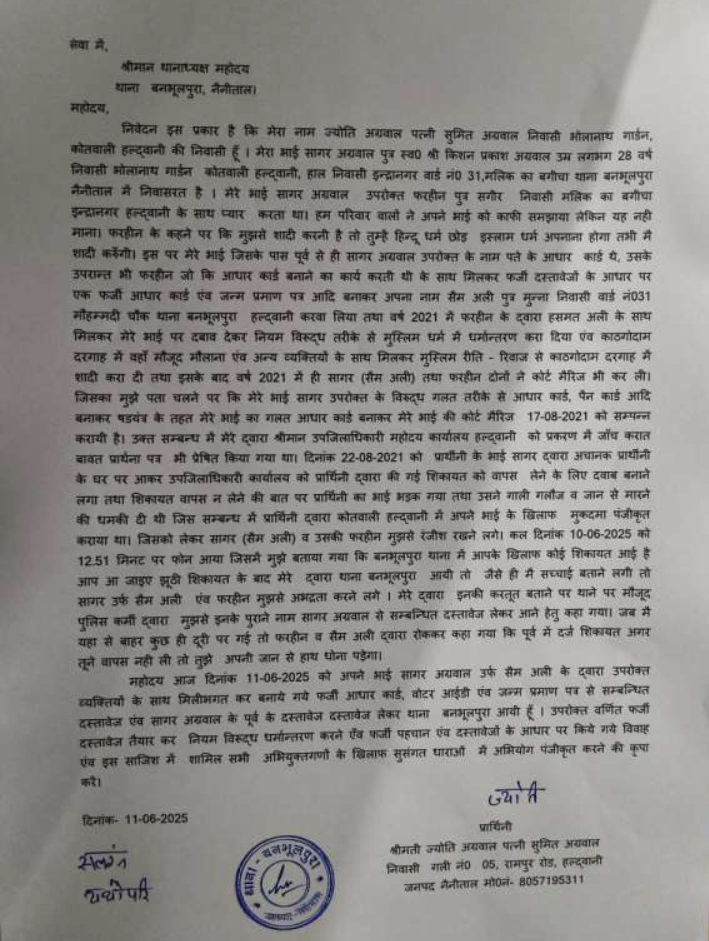 सेवा में,
श्रीमान थानाध्यक्ष महोदय
थाना बनभूलपुरा, नैनीताल।
महोदय,
निवेदन इस प्रकार है कि मेरा नाम ज्योति अग्रवाल पत्नी सुमित अग्रवाल निवासी भोलानाथ गार्डन,
कोतवाली हल्द्वानी की निवासी हूँ । मेरा भाई सागर अग्रवाल पुत्र स्व0 श्री किशन प्रकाश अग्रवाल उम्र लगभग 28 वर्ष
निवासी भोलानाथ गार्डन कोतवाली हल्द्वानी, हाल निवासी इन्द्रानगर वार्ड नं0 31,मलिक का बगीचा थाना बनभूलपुरा
नैनीताल में निवासरत है । मेरे भाई सागर अग्रवाल उपरोक्त फरहीन पुत्र सगीर निवासी मलिक का बगीचा
इन्द्रानगर हल्द्वानी के साथ प्यार करता था। हम परिवार वालों ने अपने भाई को काफी समझाया लेकिन यह नही
माना। फरहीन के कहने पर कि मुझसे शादी करनी है तो तुम्हे हिन्दू धर्म छोड़ इस्लाम धर्म अपनाना होगा तभी में
शादी करुँगी। इस पर मेरे भाई जिसके पास पूर्व से ही सागर अग्रवाल उपरोक्त के नाम पते के आधार कार्ड थे, उसके
उपरान्त भी फरहीन जो कि आधार कार्ड बनाने का कार्य करती थी के साथ मिलकर फर्जी दस्तावेजों के आधार पर
एक फर्जी आधार कार्ड एंव जन्म प्रमाण पत्र आदि बनाकर अपना नाम सैम अली पुत्र मुन्ना निवासी वार्ड नं031
मौहम्मदी चौक थाना बनभूलपुरा हल्द्वानी करवा लिया तथा वर्ष 2021 में फरहीन के द्वारा हसमत अली के साथ
मिलकर मेरे भाई पर दबाव देकर नियम विरूद्ध तरीके से मुस्लिम धर्म में धर्मान्तरण करा दिया एंव काठगोदाम
दरगाह में वहाँ मौजूद मौलाना एंव अन्य व्यक्तियों के साथ मिलकर मुस्लिम रीति - रिवाज से काठगोदाम दरगाह में
शादी करा दी तथा इसके बाद वर्ष 2021 में ही सागर (सैम अली) तथा फरहीन दोनों ने कोर्ट मैरिज भी कर ली।
जिसका मुझे पता चलने पर कि मेरे भाई सागर उपरोक्त के विरुद्ध गलत तरीके से आधार कार्ड, पैन कार्ड आदि
बनाकर षडयंत्र के तहत मेरे भाई का गलत आधार कार्ड बनाकर मेरे भाई की कोर्ट मैरिज 17-08-2021 को सम्पन्न
करायी है। उक्त सम्बन्ध में मेरे द्वारा श्रीमान उपजिलाधिकारी महोदय कार्यालय हल्द्वानी को प्रकरण में जाँच करात
बावत प्रार्थना पत्र भी प्रेषित किया गया था। दिनांक 22-08-2021 को प्रार्थीनी के भाई सागर द्वारा अचानक प्रार्थीनी
के घर पर आकर उपजिलाधिकारी कार्यालय को प्रार्थिनी द्वारा की गई शिकायत को वापस लेने के लिए दवाब बनाने
लगा तथा शिकायत वापस न लेने की बात पर प्रार्थिनी का भाई भड़क गया तथा उसने गाली गलौज व जान से मारने
की धमकी दी थी जिस सम्बन्ध में प्रार्थिनी द्वारा कोतवाली हल्द्वानी में अपने भाई के खिलाफ मुकदमा पंजीकृत
कराया था। जिसको लेकर सागर (सैम अली) व उसकी फरहीन मुझसे रंजीश रखने लगे। कल दिनांक 10-06-2025 को
12.51 मिनट पर फोन आया जिसमें मुझे बताया गया कि बनभूलपुरा थाना में आपके खिलाफ कोई शिकायत आई है
आप आ जाइए झूठी शिकायत के बाद मेरे द्वारा थाना बनभूलपुरा आयी तो जैसे ही में सच्चाई बताने लगी तो
सागर उर्फ सैम अली एंव फरहीन मुझसे अभद्रता करने लगे । मेरे द्वारा इनकी करतूत बताने पर थाने पर मौजूद
पुलिस कर्मी द्वारा मुझसे इनके पुराने नाम सागर अग्रवाल से सम्बन्धित दस्तावेज लेकर आने हेतु कहा गया। जब मै
यहा से बाहर कुछ ही दूरी पर गई तो फरहीन व सैम अली द्वारा रोककर कहा गया कि पूर्व में दर्ज शिकायत अगर
तूने वापस नही ली तो तुझे अपनी जान से हाथ धोना पड़ेगा।
महोदय आज दिनांक 11-06-2025 को अपने भाई सागर अग्रवाल उर्फ सैम अली के द्वारा उपरोक्त
व्यक्तियों के साथ मिलीभगत कर बनाये गये फर्जी आधार कार्ड, वोटर आईडी एंव जन्म प्रमाण पत्र से सम्बन्धित
दस्तावेज एंव सागर अग्रवाल के पूर्व के दस्तावेज दस्तावेज लेकर थाना बनभूलपुरा आयी हूँ । उपरोक्त वर्णित फर्जी
दस्तावेज तैयार कर नियम विरूद्ध धर्मान्तरण करने एँव फर्जी पहचान एंव दस्तावेजों के आधार पर किये गये विवाह
एंव इस साजिश में शामिल सभी अभियुक्तगणों के खिलाफ सुसंगत धाराओं में अभियोग पंजीकृत करने की कृपा
करें।
ज्योति
दिनांक- 11-06-2025
प्रार्थिनी
श्रीमती ज्योति अग्रवाल पत्नी सुमित अग्रवाल
निवासी गली नं0 05, रामपुर रोड, हल्द्वानी
जनपद नैनीताल मो0नं- 8057195311
संलग्न
यथोपरि
थाना - बनभूलपुरा
जनपद-नैनीताल